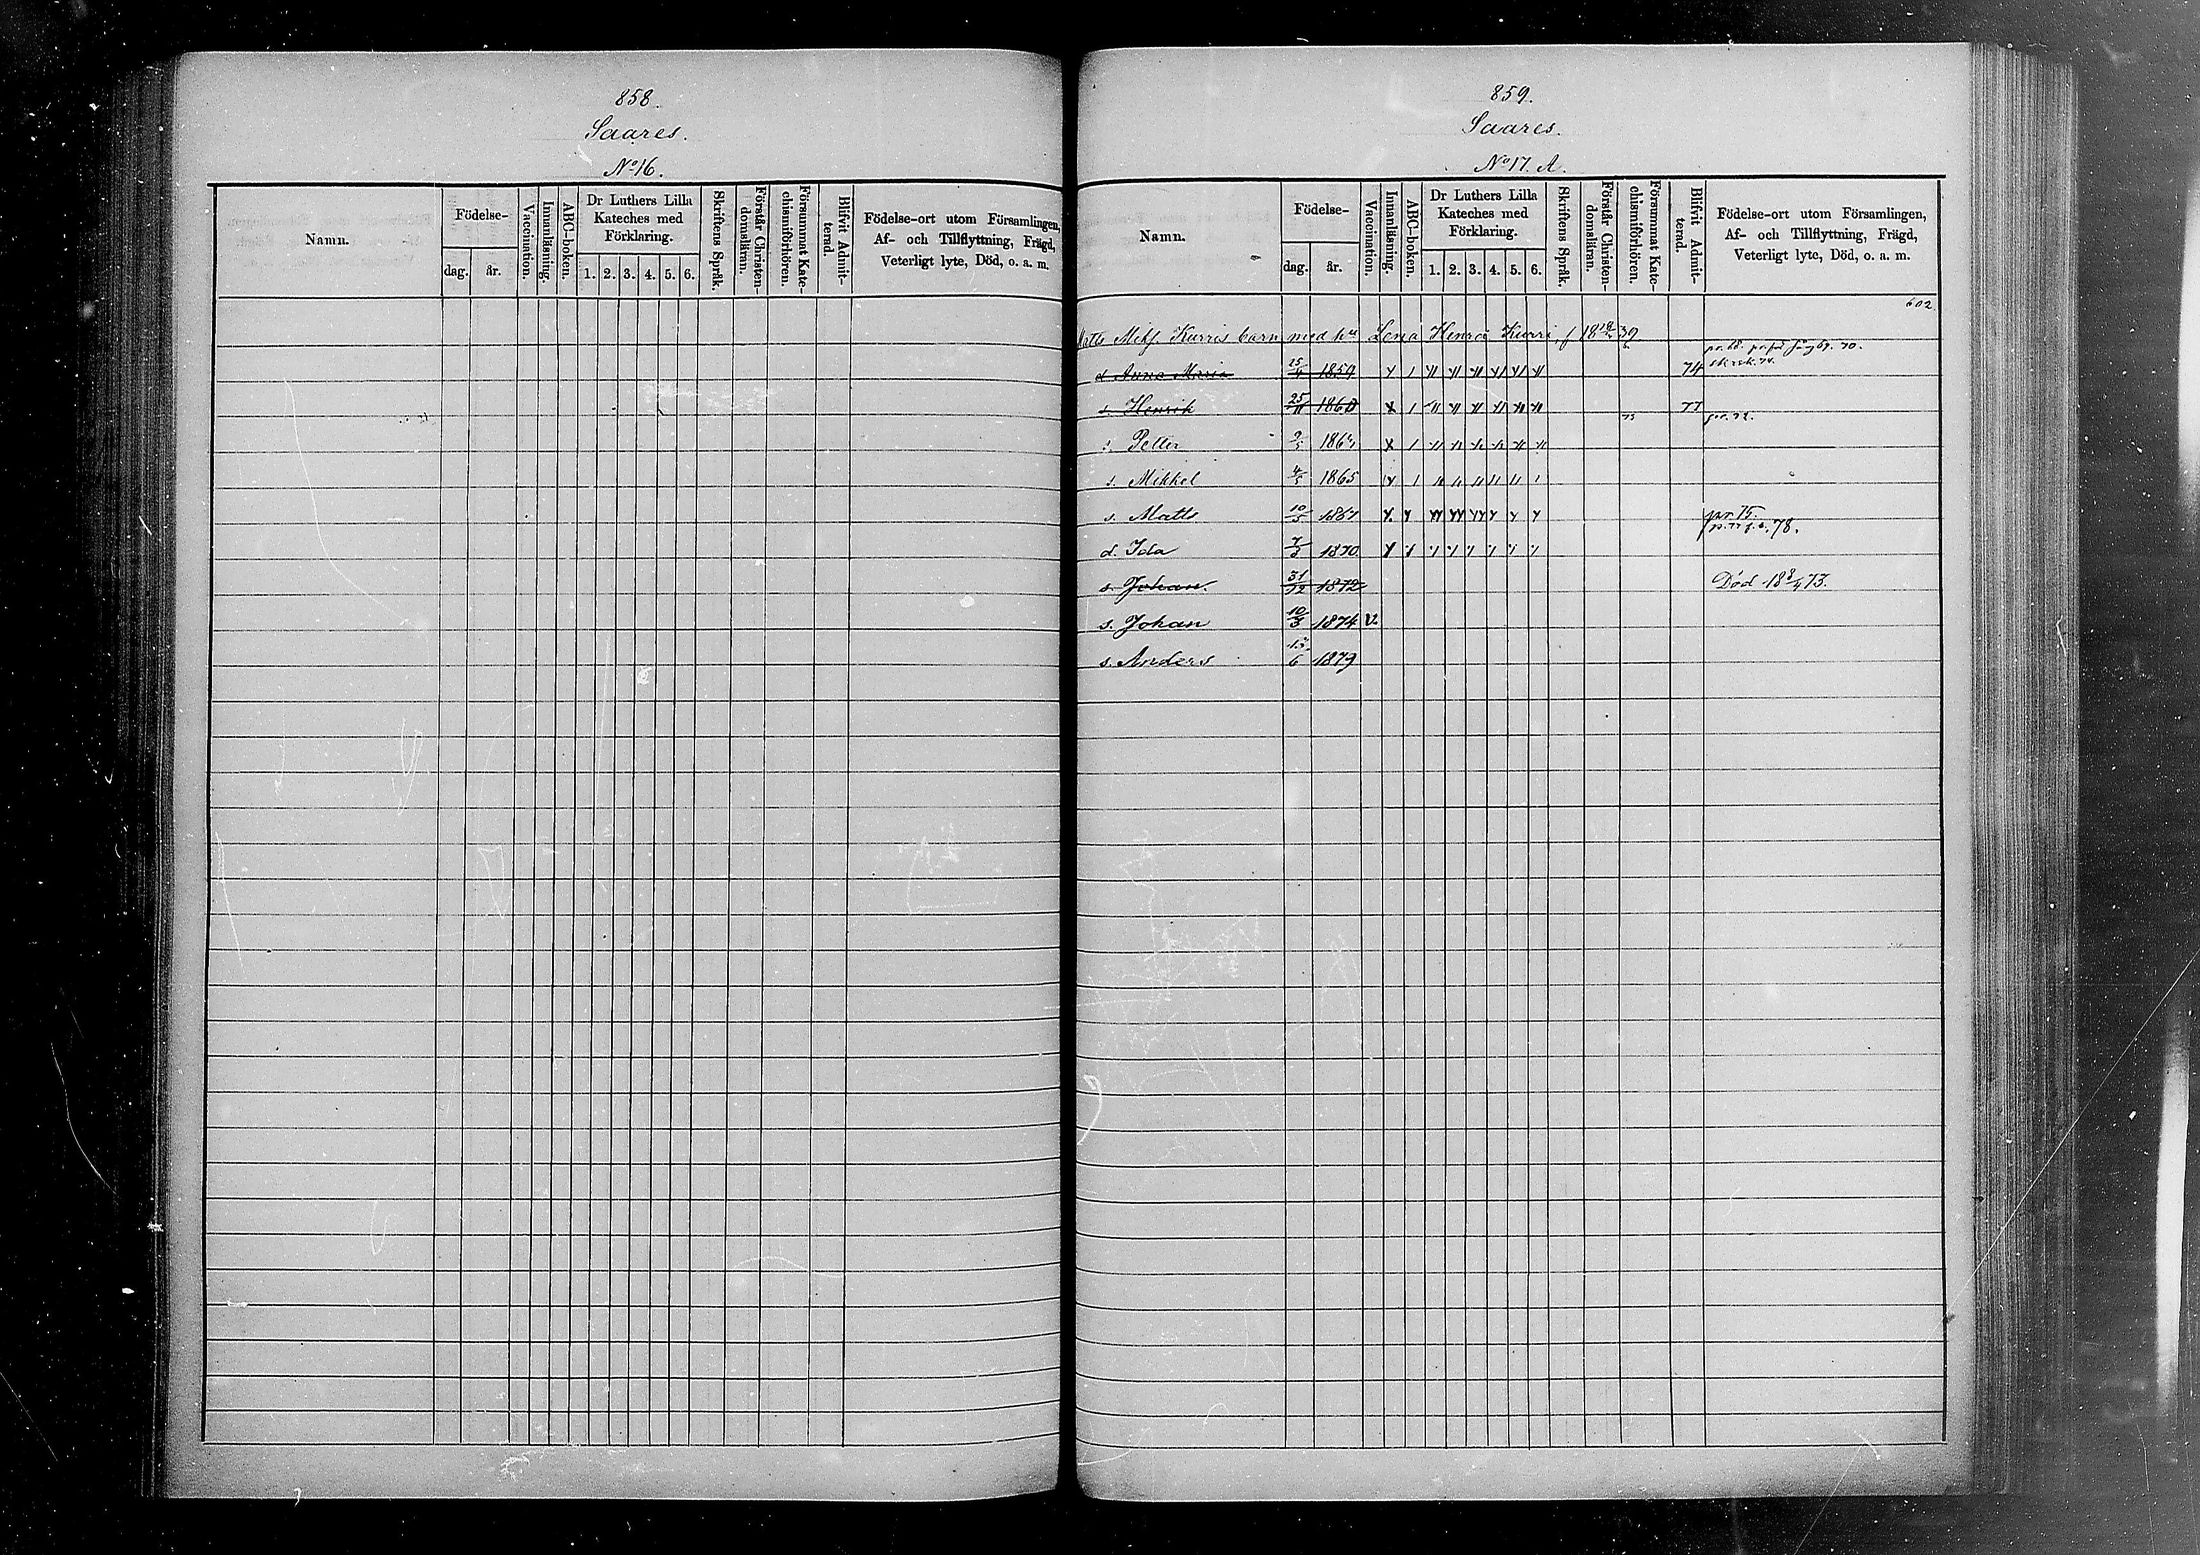 858.
Saares.
No 16.
Namn.
Födelse-
dag.
år.
Vaccination.
Innanläsning.
ABC-boken.
Dr Luthers Lilla
Kateches med
Förklaring.
1. 2. 3. 4. 5. 6.
Skriftens Språk.
Förstår Christen-
domsläran.
Försummat Kate-
chismiförhören.
Blifvit Admit-
terad.
Födelse-ort utom Församlingen,
Af- och Tillflyttning, Frägd,
Veterligt lyte, Död, o. a. m.
859.
Saares.
No 17. A.
Namn.
Födelse-
dag.
år.
Vaccination.
Innanläsning.
ABC-boken.
Dr Luthers Lilla
Kateches med
Förklaring.
1. 2. 3. 4. 5. 6.
Skriftens Språk.
Förstår Christen-
domsläran.
Försummat Kate-
chismiförhören.
Blifvit Admit-
terad.
Födelse-ort utom Församlingen,
Af- och Tillflyttning, Frägd,
Veterligt lyte, Död, o. a. m.
602.
Matts Kurris barn med Lena Kurri, f
d Anna Maria 25/4 1859 74
s. Henrik 25/11 1860 77 pr. 72.
s. Petter
s. Mikkel 4/5 1865
s. Matts 10/5 1867 pr. 75. 78.
d. Ida 7/3 1870
s. Johan. 31/12 1872 Död 18 8/4 73.
s. Johan 10/3 1874 V.
s. Anders 1879